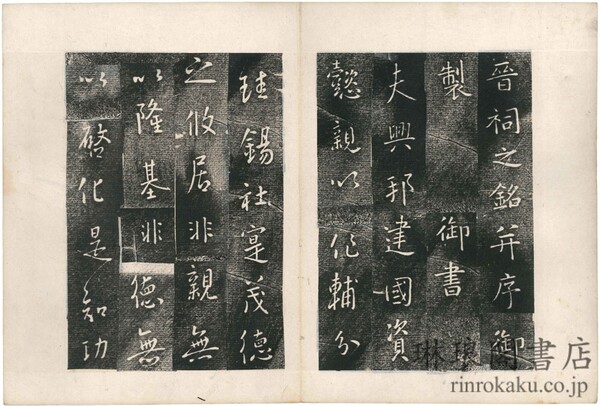 晉祠之銘并序御
製 御書
夫興邦建國資
懿親以作輔分
珪錫社寔茂德
之攸居非親無
以隆基非德無
以啓化是知功
琳琅閣書店
rinrokaku.co.jp